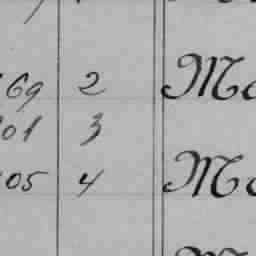 69 2 Ma
01 3
05 4 Ma